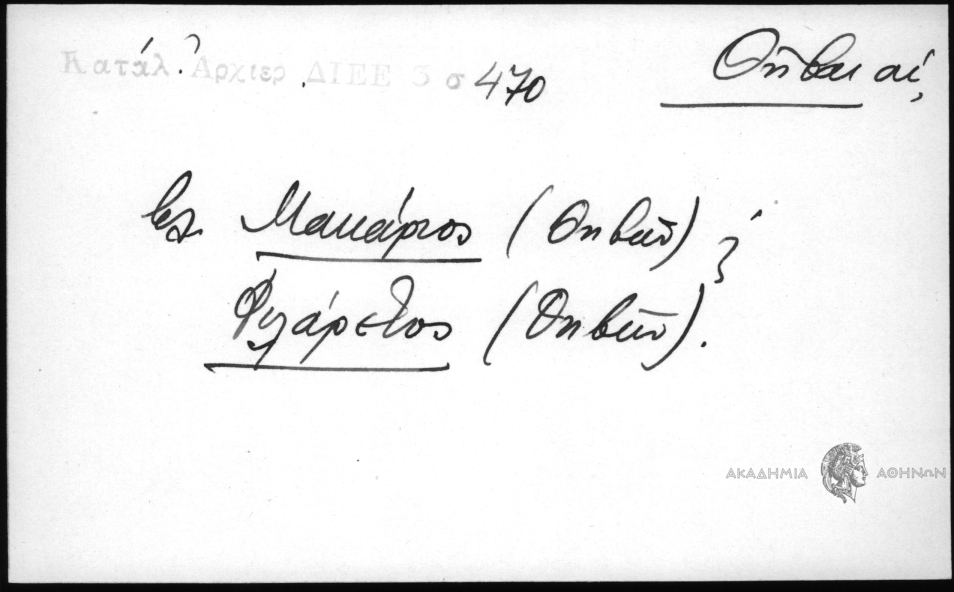 Κατάλ. Ἀρχιερ ΔΙΕΕ 3 σ 470
Θῆβαι αἱ,
Μακάριος (Θηβῶν) ;
Φιλάρετος (Θηβῶν).
ΑΚΑΔΗΜΙΑ ΑΘΗΝΩΝ